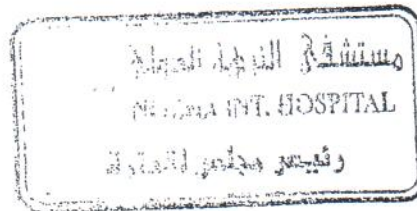 مستشفى النزهة الدولي
NOZHA INT. HOSPITAL
رئيس مجلس الإدارة